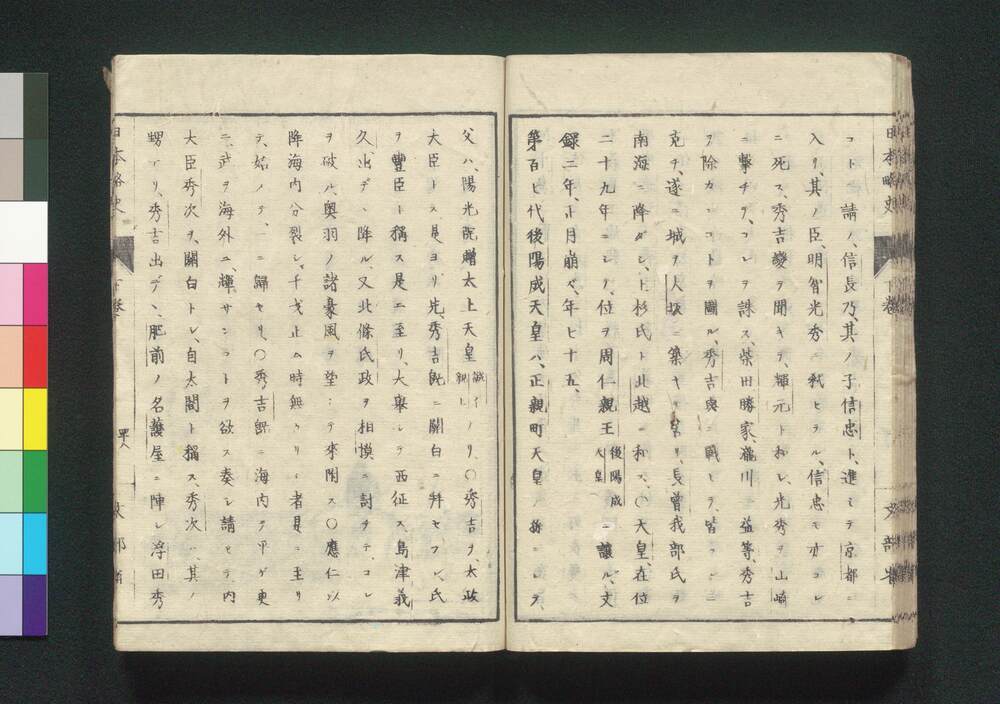 コトヲ請フ、信長乃、其ノ子信忠ト、進ミテ京都ニ
入リ、其ノ臣、明智光秀ニ弒セラル、信忠モ亦コレ
ニ死ス、秀吉變ヲ聞キテ、輝元ト和シ、光秀ヲ山崎
ニ擊チテ、コレヲ誅ス、柴田勝家、瀧川一益等、秀吉
ヲ除カンコトヲ圖ル、秀吉與ニ戰ヒテ、皆コレニ
克チ、遂ニ城ヲ大坂ニ築キテ居リ、長曾我部氏ヲ
南海ニ降ダシ、上杉氏ト北越ニ和ス、〇天皇、在位
二十九年ニシテ、位ヲ周仁親王 後陽成天皇 ニ讓ル、文
錄二年、正月崩ズ、年七十五、
第百七代後陽成天皇ハ、正親町天皇ノ孫ニシテ、
父ハ、陽光院贈太上天皇 誠仁親王 ナリ、〇秀吉ヲ太政
大臣トス、是ヨリ先、秀吉既ニ關白ニ拜セラレ、氏
ヲ豐臣ト稱ス是ニ至リ、大擧シテ西征ス、島津義
久出デヽ降ル、又北條氏政ヲ相摸ニ討チテ、コレ
ヲ破ル、奧羽ノ諸豪風ヲ望ミテ來附ス〇應仁以
降海内分裂シ、干戈止ム時無カリシ者是ニ至リ
テ、始メテ、一ニ歸セリ、〇秀吉既ニ海内ヲ平ゲ更
ニ、武ヲ海外ニ、輝サンコトヲ欲ス奏シ請ヒテ、内
大臣秀次ヲ、關白トシ、自太閤ト稱ス、秀次ハ、其ノ
甥ナリ、秀吉出デヽ、肥前ノ名護屋ニ陣シ、浮田秀
日本略史
下卷
文部省
日本略史
下卷
文部省